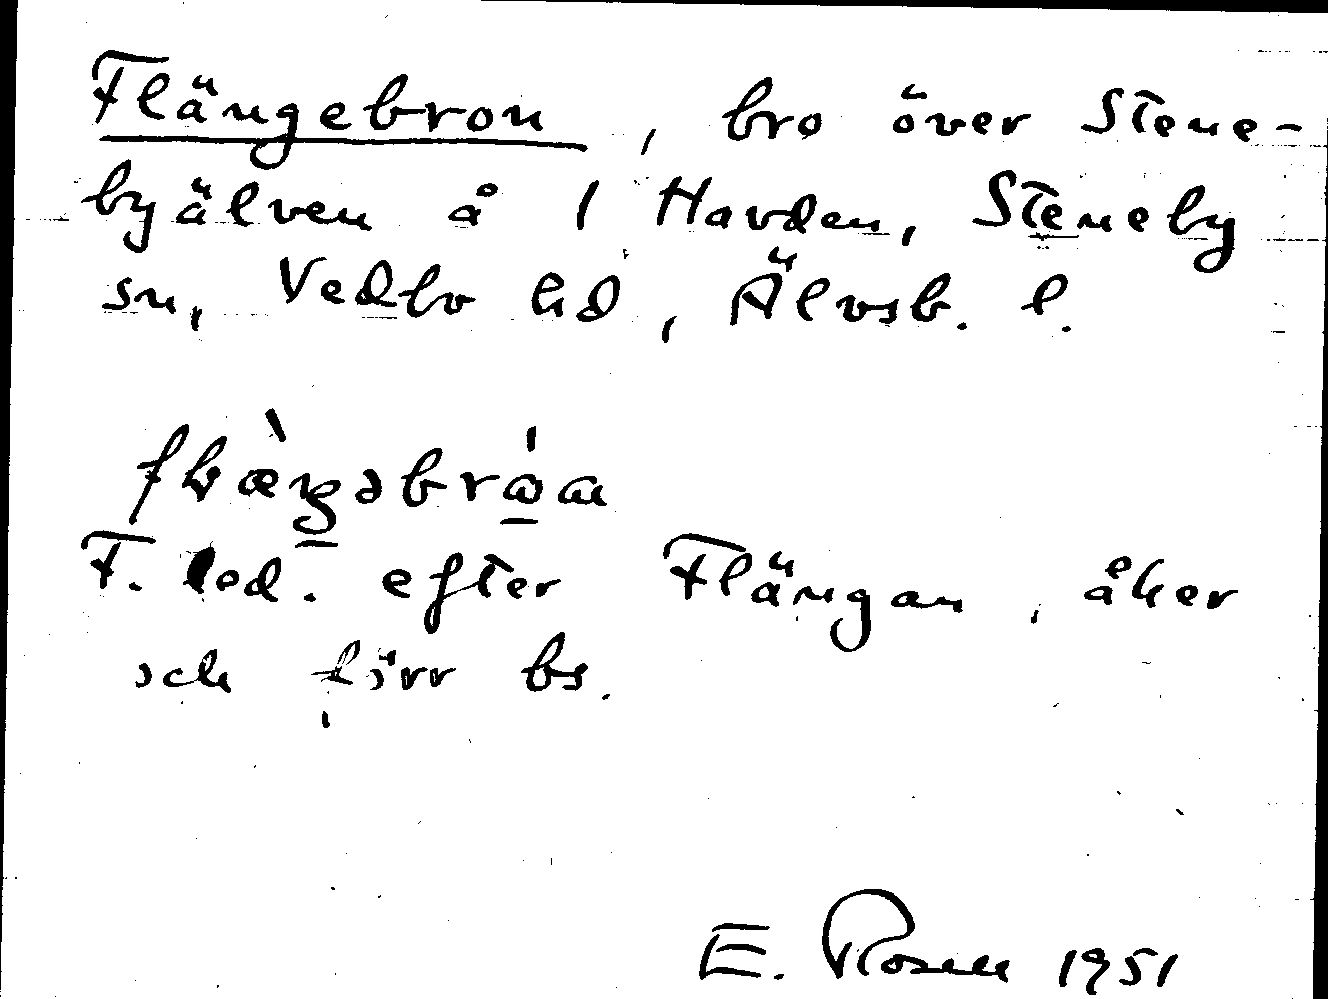 Flängebron, bro över Stene-
byälven å 1 Havden, Steneby
sn, Vedbo hd, Älvsb. l.
F. led. efter Flängan, åker
och förr bs.
E. Rosén 1951